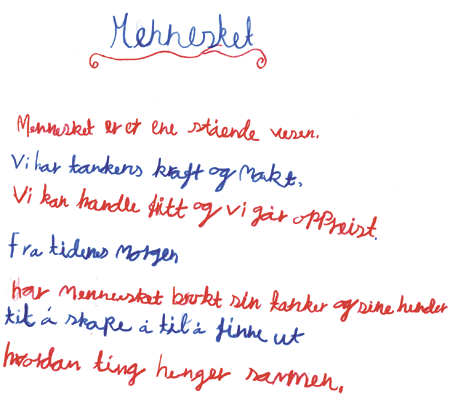 Mennesket
Mennesket er et ene stående vesen.
Vi har tankens kraft og Makt.
Vi kan handle fritt og vi går oppreist.
fra tidenes Morgen
har Mennesket brukt sin tanker og sine hender
til å skape å til å finne ut
hvordan ting henger sammen.